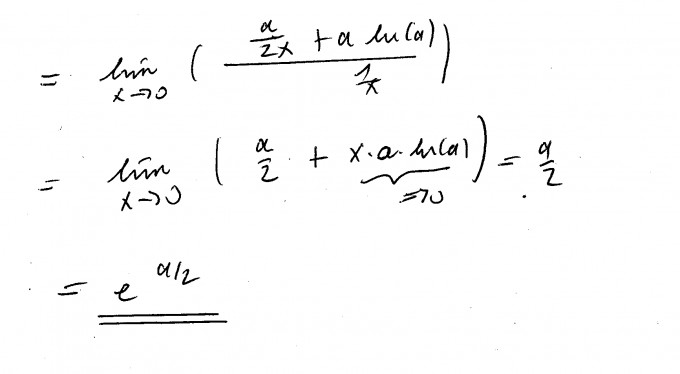 = lim x→0 ( (a/2x + a ln(a)) / (1/x) )
= lim x→0 ( a/2 + x·a·ln(a) ) = a/2
⇒0
= e^a/2